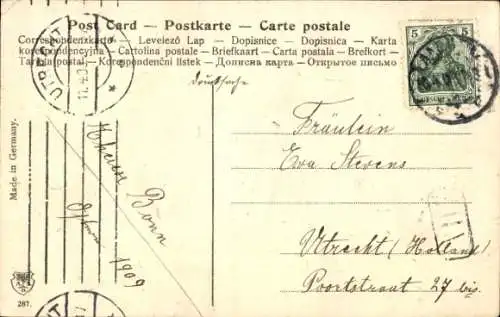 Post Card – Postkarte – Carte postale
Correspondenzkarte – Levelező Lap – Dopisnice – Dopisnica – Karta
korespondencyjna – Cartolina postale – Briefkaart – Carta postala – Brefkort –
Tarjeta postal – Korespondenční listek – Дописна карта – Открытое письмо
Drucksache
5 5
UTRECHT
Fräulein
Eva Stevens
Utrecht (Holland)
Poortstraat 27 bis
Bonn
1909
Made in Germany.
287.